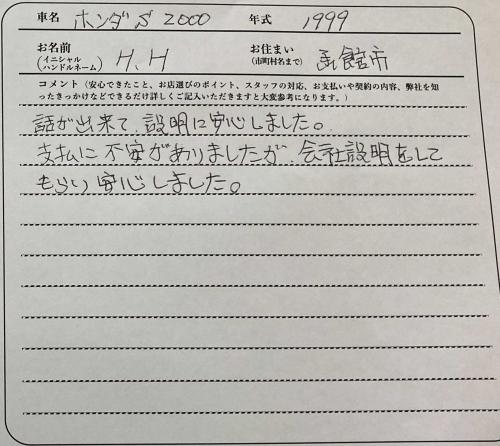 車名 ホンダ S2000 年式 1999
お名前 (イニシャル ハンドルネーム) H、H お住まい (市町村名まで) 函館市
コメント（安心できたこと、お店選びのポイント、スタッフの対応、お支払いや契約の内容、弊社を知
ったきっかけなどできるだけ詳しくご記入いただきますと大変参考になります。）
話が出来て、説明に安心しました。
支払に不安がありましたが、会社説明をして
もらい安心しました。